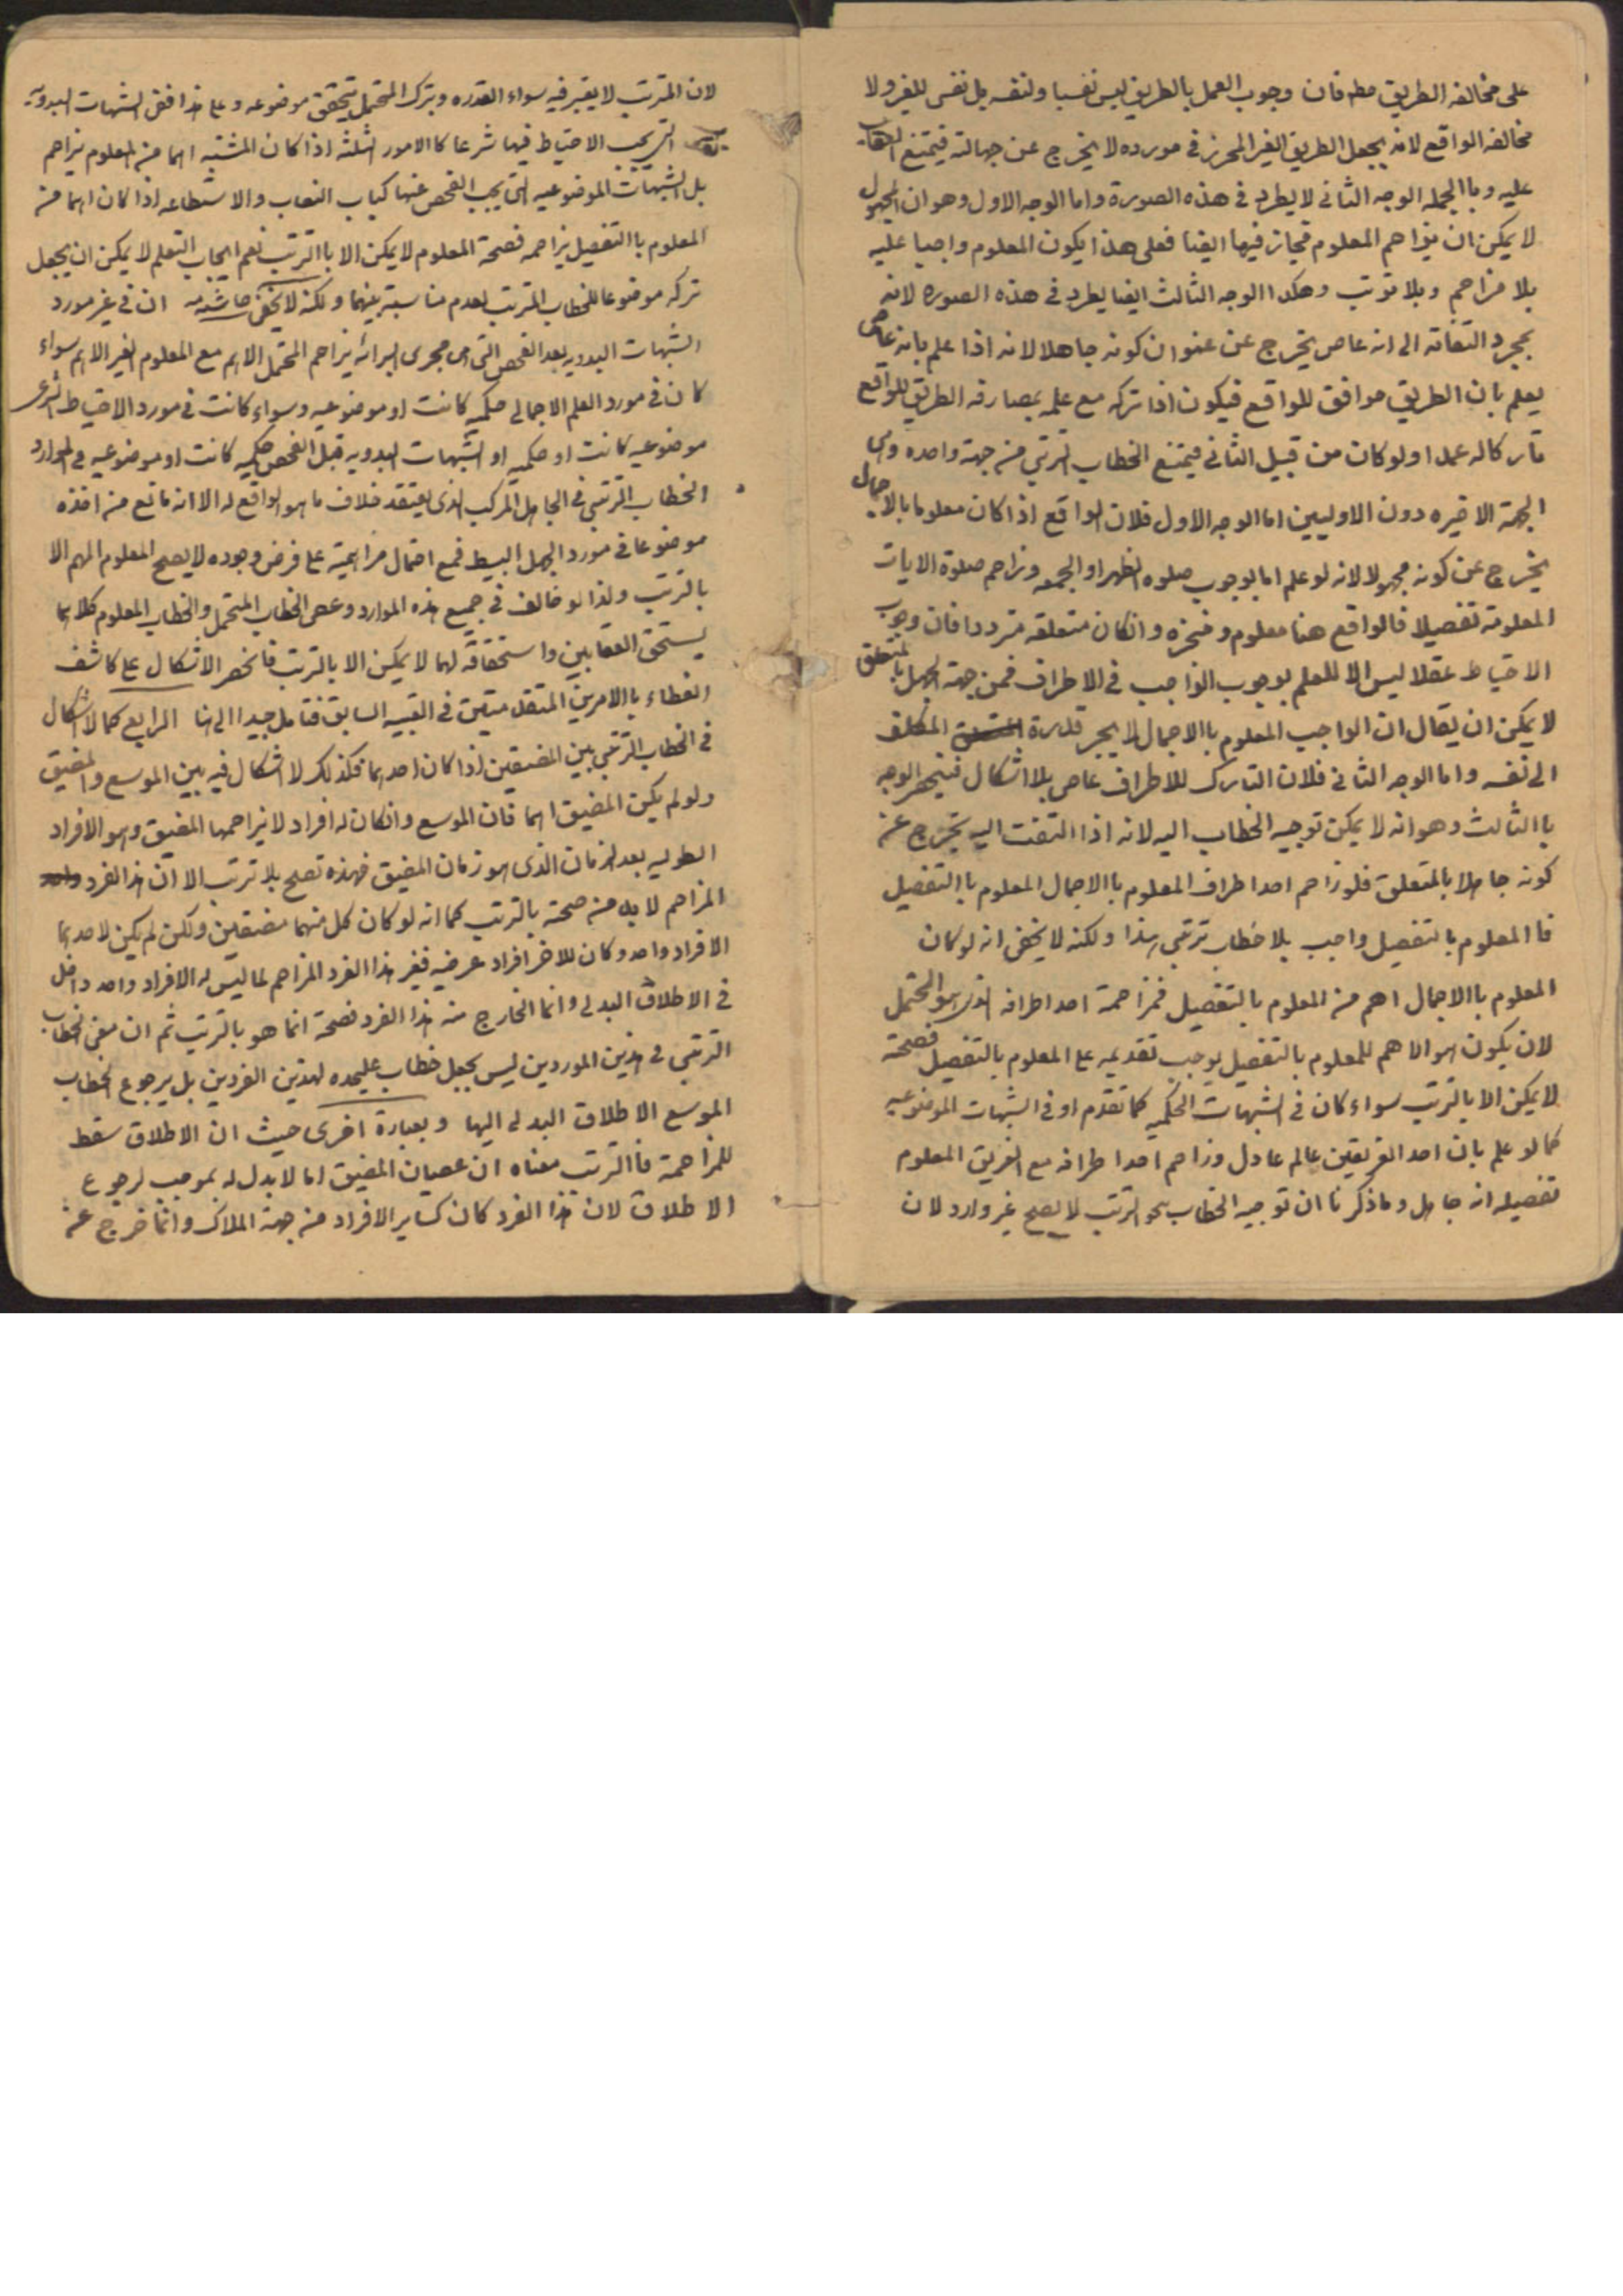 على مخالفة الطريق مطم فان وجوب العمل بالطريق ليس نفسيا ولنفسه بل نفسى للغير ولا
مخالفة الواقع لانه بجعل الطريق الغير المحرز فى مورده لا يخرج عن جهالته فيمتنع العقاب
عليه وبا الجمله الوجه الثانى لا يطرد فى هذه الصورة واما الوجه الاول وهو ان المجهول
لا يمكن ان يزاهم المعلوم فجاز فيها ايضا فعلى هذا يكون المعلوم واجبا عليه
بلا مزاحم وبلا ترتب وهكذا الوجه الثالث ايضا يطرد فى هذه الصوره لانه
بمجرد التفاته الى انه عاص يخرج عن عنوان كونه جاهلا لانه اذا علم بانه عاص
يعلم بان الطريق موافق للواقع فيكون اذا تركه مع علمه بمصادفه الطريق للواقع
تاركا له عمدا ولو كان من قبيل الثانى فيمتنع الخطاب الترتبى من جهة واحده وهى
الجهة الاخيره دون الاوليين اما الوجه الاول فلان الواقع اذا كان معلوما بالاجمال
يخرج عن كونه مجهولا لانه لو علم اما بوجوب صلوه الظهر او الجمعه وزاحم صلوة الايات
المعلومة تفصيلا فالواقع هنا معلوم ومنجزه وانكان متعلقه مترددا فان وجوب
الاحتياط عقلا ليس الا للعلم بوجوب الواجب فى الاطراف فمن جهة الجهل بالمتعلق
لا يمكن ان يقال ان الواجب المعلوم باالاجمال لا يجر قدرة المكلف
الى نفسه واما الوجه الثانى فلان التارك للاطراف عاص بلا اشكال فينحصر الوجه
باالثالث وهو انه لا يمكن توجيه الخطاب اليه لانه اذا التفت اليه يخرج عن
كونه جاهلا بالمتعلق فلو زاحم احد اطراف المعلوم باالاجمال المعلوم باالتفصيل
فا المعلوم بالتفصيل واجب بلا خطاب ترتبى هذا ولكنه لا يخفى انه لو كان
المعلوم باالاجمال اهم من المعلوم بالتفصيل فمزاحمة احد اطرافه الذى هو المحتمل
لان يكون هو الاهم للمعلوم بالتفصيل يوجب تقديمه على المعلوم بالتفصيل فصحته
لا يمكن الا بالترتب سواء كان فى الشبهات الحكميه كما تقدم او فى الشبهات الموضوعيه
كما لو علم بان احد الغريقين عالم عادل وزاحم احد اطرافه مع الغريق المعلوم
تفصيله انه جاهل وماذكرنا ان توجيه الخطاب بنحو الترتب لا يصح غير وارد لان
لان المترتب لا يعتبر فيه سواء القدره وبترك المحتمل يتحقق موضوعه وعلى هذا فقس الشبهات البدويه
التى يجب الاحتياط فيها شرعا كا الامور الثلثه اذا كان المشتبه اهما من المعلوم يزاحم
بل الشبهات الموضوعيه التى يجب الفحص عنها كباب النصاب والاستطاعه اذا كان اهما من
المعلوم باالتفصيل يزاحمه فصحة المعلوم لا يمكن الا باالترتب نعم ايجاب التعلم لا يمكن ان يجعل
تركه موضوعا للخطاب المترتب لعدم مناسبة بينهما ولكنه لا يخفى حاشيه ان فى غير مورد
الشبهات البدويه بعد الفحص التى هى مجرى البرائه يزاحم المحتمل الاهم مع المعلوم الغير الاهم سواء
كان فى مورد العلم الاجمالى حكميه كانت او موضوعيه وسواء كانت فى مورد الاحتياط الشرعى
موضوعيه كانت او حكميه او الشبهات البدويه قبل الفحص حكميه كانت او موضوعيه فى الموارد
الخطاب الترتبى فى الجاهل المركب الذى يعتقد خلاف ما هو الواقع له الا انه مانع من اخذه
موضوعا فى مورد الجهل البسيط فمع احتمال مزاحمية على فرض وجوده لا يصح المعلوم المهم الا
بالترتب ولذا لو خالف فى جميع هذه الموارد وعصى الخطاب المحتمل والخطاب المعلوم كلاهما
يستحق العقابين واستحقاقه لهما لا يمكن الا بالترتب فانحصر الاشكال على كاشف
الغطاء باالامرين المتقدمتين فى التنبيه السابق فتامل جيدا الى هنا الرابع كما لا اشكال
فى الخطاب الترتبى بين المضيقين اذا كان احدهما فكذلك لا اشكال فيه بين الموسع والمضيق
ولو لم يكن المضيق اهما فان الموسع وانكان له افراد لا يزاحمها المضيق وهو الافراد
الطوليه بعد الزمان الذى هو زمان المضيق فهذه تصح بلا ترتب الا ان هذا الفرد
المزاحم لا بد من صحته بالترتب كما انه لو كان كل منهما مضيقين ولكن لم يكن لاحدهما
الا فراد واحد وكان للاخر افراد عرضيه فغير هذا الفرد المزاحم لما ليس له الا فراد واحد داخل
فى الاطلاق البدلى وانما الخارج منه هذا الفرد فصحة انما هو بالترتب ثم ان معنى الخطاب
الترتبى فى هذين الموردين ليس بجعل خطاب عليحده لهذين الفردين بل يرجوع الخطاب
الموسع الاطلاق البدلى اليها وبعبارة اخرى حيث ان الاطلاق سقط
للمزاحمة فا الترتب معناه ان عصيان المضيق اما لا بدل له بموجب لرجوع
الاطلاق لان هذا الفرد كان كساير الافراد من جهة الملاك وانما خرج عن